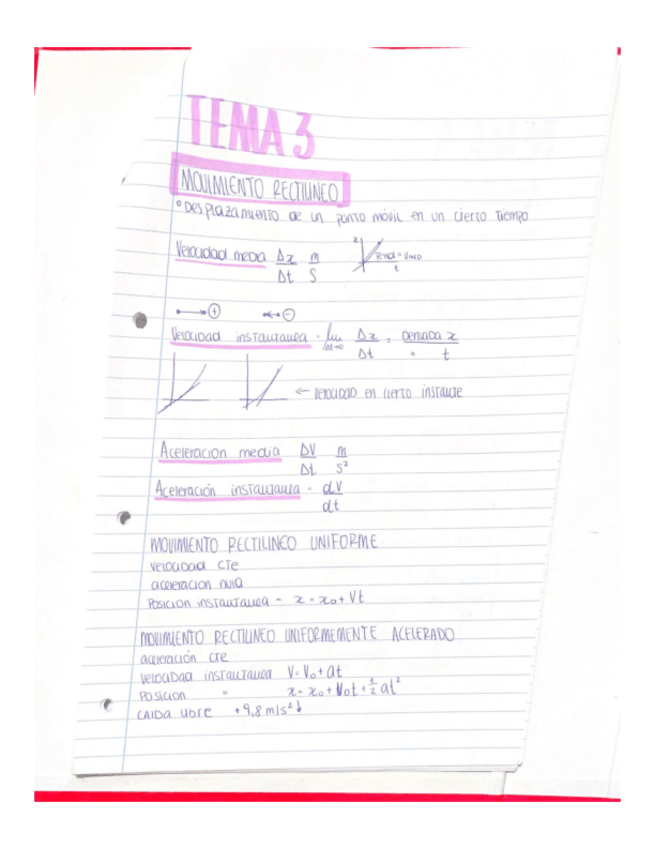 TEMA 3
MOVIMIENTO RECTILINEO
° Desplazamiento de un punto móvil en un cierto tiempo
Velocidad media Δx/Δt m/s
x
t
+ -
Velocidad instantanea = lim Δt→0 Δx/Δt = Derivada x / " t
← velocidad en cierto instante
Aceleracion media ΔV/Δt m/s²
Aceleración instantanea = dV/dt
MOVIMIENTO RECTILINEO UNIFORME
velocidad cte
aceleracion nula
Posicion instantanea = x = x₀ + Vt
MOVIMIENTO RECTILINEO UNIFORMEMENTE ACELERADO
aceleración cte
velocidad instantanea V = V₀ + at
Posicion " x = x₀ + V₀t + ½ at²
CAIDA LIBRE +9,8 m/s² ↓